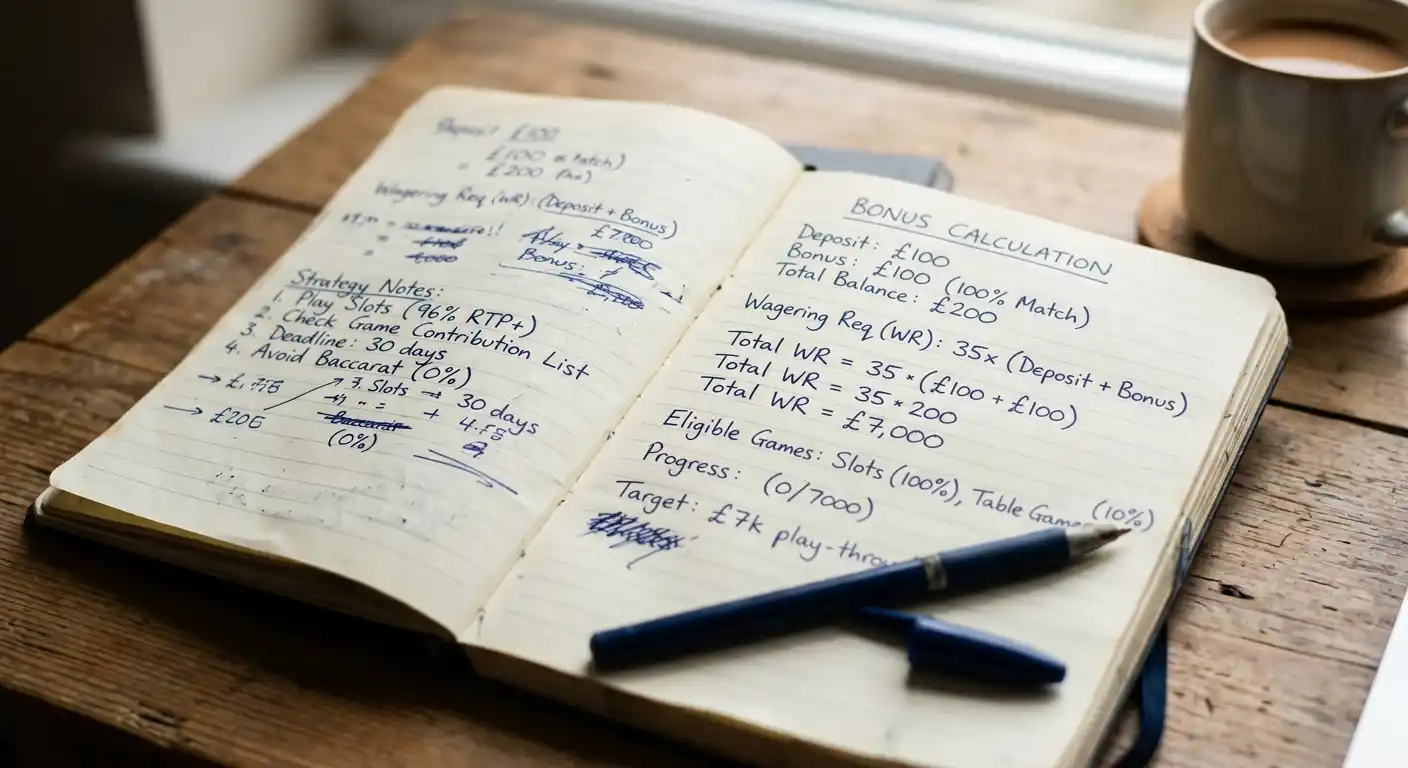 Deposit £100
£100 Match)
= £200
Wagering Req (WR): (Deposit + Bonus)
£7,000
Bonus:
Strategy Notes:
1. Play Slots (96% RTP+)
2. Check Game Contribution List
3. Deadline: 30 days
4. Avoid Baccarat (0%)
3. Slots → 30 days
Baccarat
(0%)
BONUS CALCULATION
Deposit: £100
Bonus: £100 (100% Match)
Total Balance: £200
Wagering Req (WR): 35x (Deposit + Bonus)
Total WR = 35 * (£100 + £100)
Total WR = 35 * 200
Total WR = £7,000
Eligible Games: Slots (100%), Table Games (10%)
Progress: (0/7000)
Target: £7k play-throu